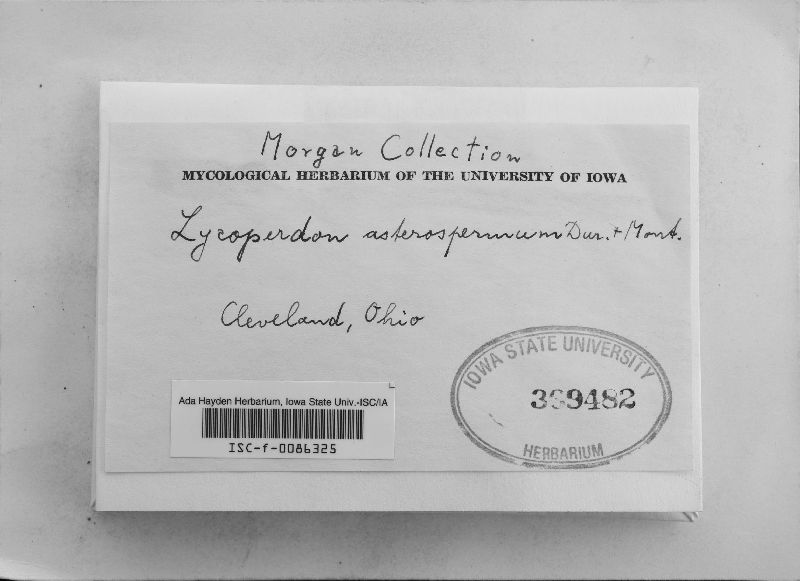 Morgan Collection
MYCOLOGICAL HERBARIUM OF THE UNIVERSITY OF IOWA
Lycoperdon asterospermum Dur. + Mont.
Cleveland, Ohio
IOWA STATE UNIVERSITY
369482
HERBARIUM
Ada Hayden Herbarium, Iowa State Univ.-ISC/IA
ISC-f-0086325